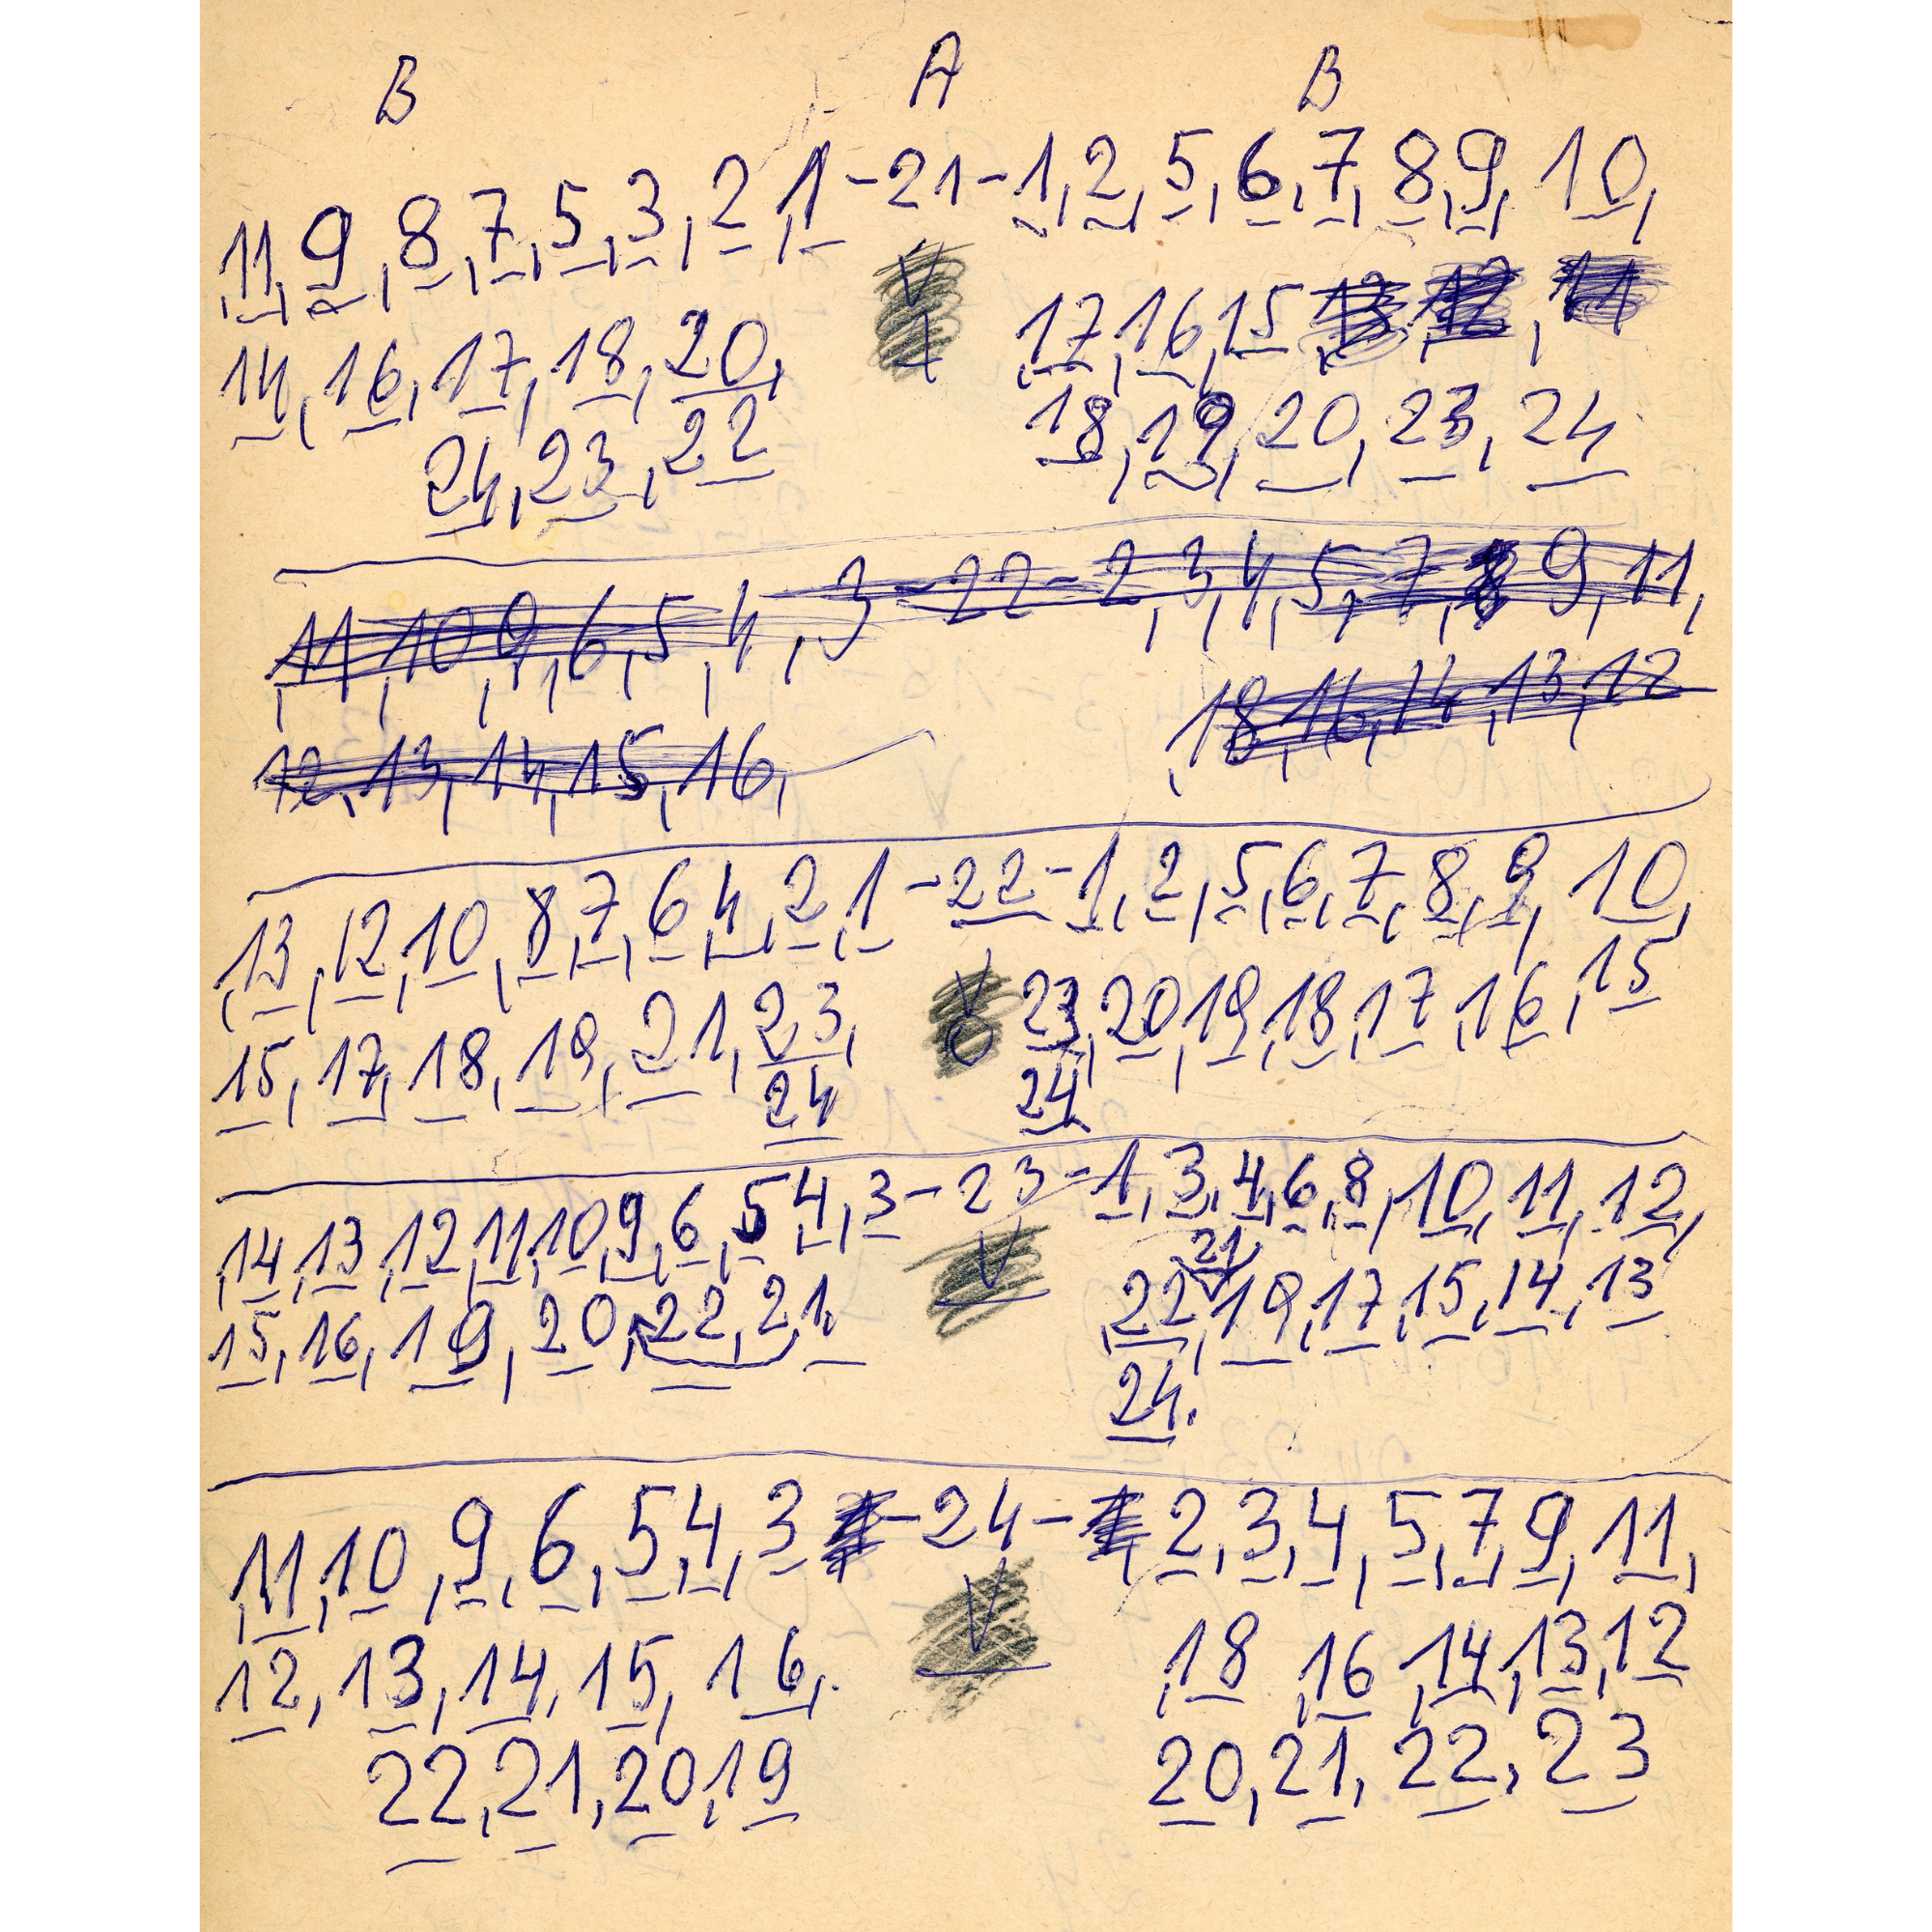 B A B
11, 9, 8, 7, 5, 3, 2, 1 - 21 - 1, 2, 5, 6, 7, 8, 9, 10,
V
14, 16, 17, 18, 20, 1 17, 16, 15, 13, 12, 11
24, 23, 22 18, 19, 20, 23, 24
11, 10, 9, 6, 5, 4, 3 - 22 - 2, 3, 4, 5, 7, 8 9, 11,
12, 13, 14, 15, 16, 18, 16, 14, 13, 12
13, 12, 10, 8, 7, 6, 4, 2, 1 - 22 - 1, 2, 5, 6, 7, 8, 9, 10,
V
15, 17, 18, 19, 21, 23, 23, 20, 19, 18, 17, 16, 15
24 24
14, 13, 12, 11, 10, 9, 6, 5 4, 3 - 23 - 1, 3, 4, 6, 8, 10, 11, 12,
21
15, 16, 19, 20, 22, 21. V 22, 19, 17, 15, 14, 13
24.
11, 10, 9, 6, 5, 4, 3 - 24 - 2, 3, 4, 5, 7, 9, 11,
12, 13, 14, 15, 16, V 18 16, 14, 13, 12
22, 21, 20, 19 20, 21, 22, 23